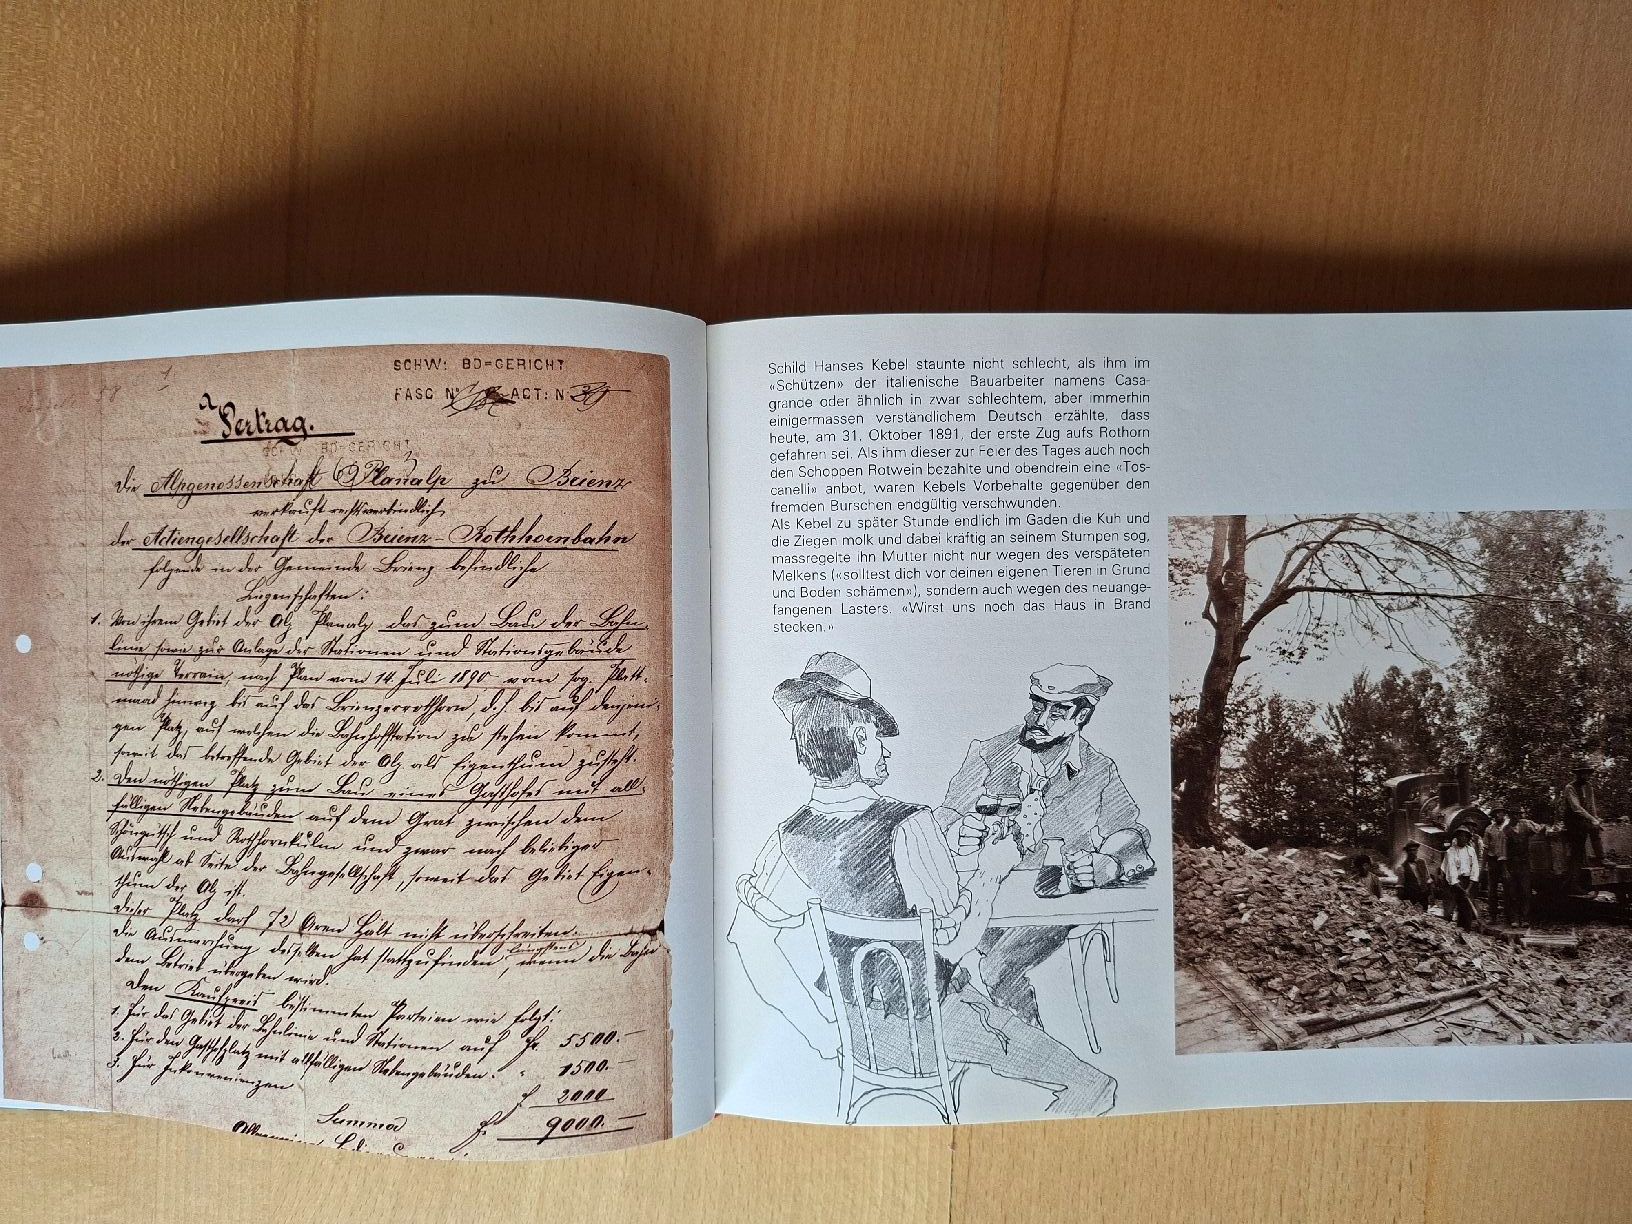 SCHW: BD=GERICHT
FASC No ACT: N
Vertrag.
Die Alpgenossenschaft Planalp zu Brienz
verkauft rechtsverbindlich
der Actiengesellschaft der Brienz-Rothhornbahn
folgende in der Gemeinde Brienz befindliche
Liegenschaften:
1. Von ihrem Gebiet der Alp Planalp das zum Bau der Bahn-
linie sowie zur Anlage der Stationen und Stationsgebäude
nötige Terrain, nach Plan vom 14. Juli 1890 vom sog. Plett-
hinweg bis auf das Brienzerrothhorn, d.h. bis auf denjeni-
gen Platz, auf welchen die Bahnhofstation zu stehen kommt,
soweit das betreffende Gebiet der Alp als Eigenthum zusteht.
2. Den nöthigen Platz zum Bau eines Gasthofes mit all-
fälligen Nebengebäuden auf dem Grat zwischen dem
Schöngütsch und Rothhornkulm und zwar nach beliebiger
Auswahl ab Seite der Bahngesellschaft, soweit das Gebiet Eigen-
thum der Alp ist.
Dieser Platz darf 72 Aren Halt nicht überschreiten.
Die Ausmarchung desselben hat stattzufinden, längstens wenn die Bahn
dem Betrieb übergeben wird.
Den Kaufpreis bestimmten Parteien wie folgt:
1. Für das Gebiet der Bahnlinie und Stationen auf Fr. 5500.-
2. Für den Gasthofplatz mit allfälligen Nebengebäuden. " 1500.-
3. Für Inkonvenienzen f 2000
Summa f. 9000.-
Schild Hanses Kebel staunte nicht schlecht, als ihm im
«Schützen» der italienische Bauarbeiter namens Casa-
grande oder ähnlich in zwar schlechtem, aber immerhin
einigermassen verständlichem Deutsch erzählte, dass
heute, am 31. Oktober 1891, der erste Zug aufs Rothorn
gefahren sei. Als ihm dieser zur Feier des Tages auch noch
den Schoppen Rotwein bezahlte und obendrein eine «Tos-
canelli» anbot, waren Kebels Vorbehalte gegenüber den
fremden Burschen endgültig verschwunden.
Als Kebel zu später Stunde endlich im Gaden die Kuh und
die Ziegen molk und dabei kräftig an seinem Stumpen sog,
massregelte ihn Mutter nicht nur wegen des verspäteten
Melkens («solltest dich vor deinen eigenen Tieren in Grund
und Boden schämen»), sondern auch wegen des neuange-
fangenen Lasters. «Wirst uns noch das Haus in Brand
stecken.»